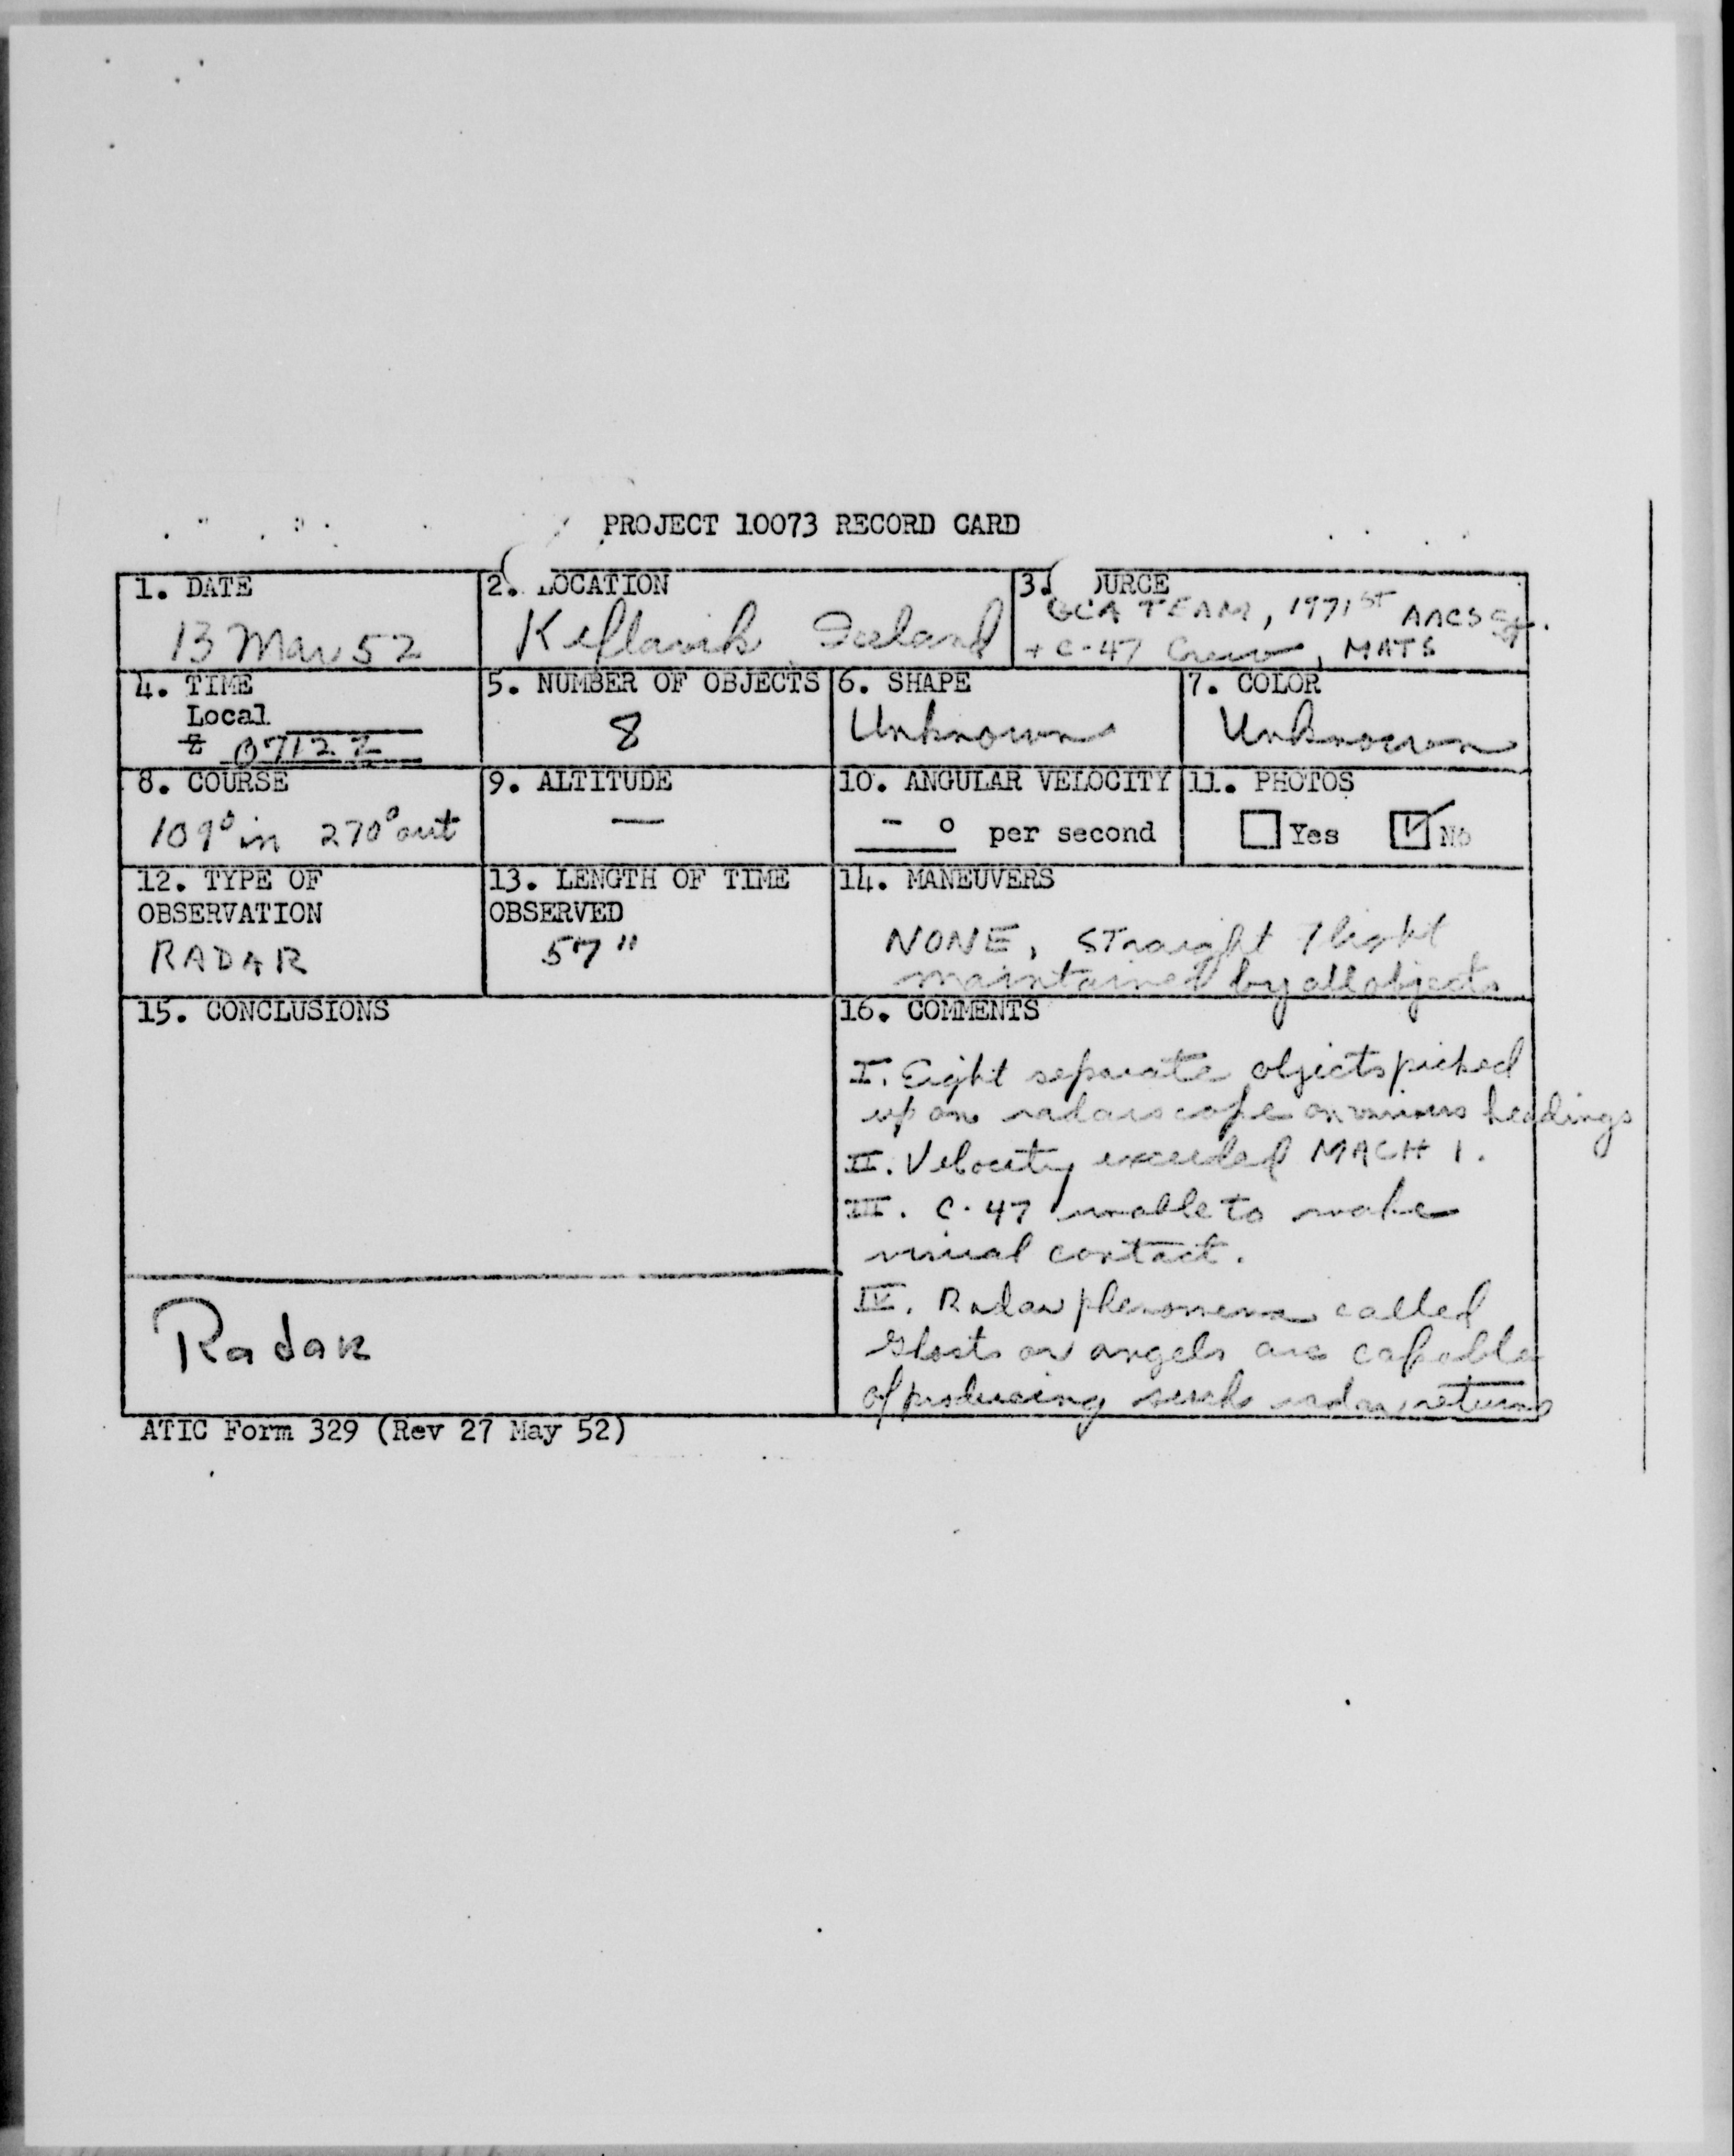 PROJECT 10073 RECORD CARD
1. DATE
13 Mar 52
2. LOCATION
Keflavik Iceland
3. OURCE
GCA TEAM, 1971ST AACS Sq.
+ C-47 Crew, MATS
4. TIME
Local
Z 0712Z
5. NUMBER OF OBJECTS
8
6. SHAPE
Unknown
7. COLOR
Unknown
8. COURSE
109° in 270° out
9. ALTITUDE
—
10. ANGULAR VELOCITY
- ° per second
11. PHOTOS
Yes No
12. TYPE OF
OBSERVATION
RADAR
13. LENGTH OF TIME
OBSERVED
57"
14. MANEUVERS
NONE, Straight flight
maintained by all objects
15. CONCLUSIONS
Radar
16. COMMENTS
I. Eight separate objects picked
up on radarscope on various headings
II. Velocity exceeded MACH 1.
III. C-47 unable to make
visual contact.
IV. Radar phenomena called
ghosts or angels are capable
of producing such radar returns
ATIC Form 329 (Rev 27 May 52)